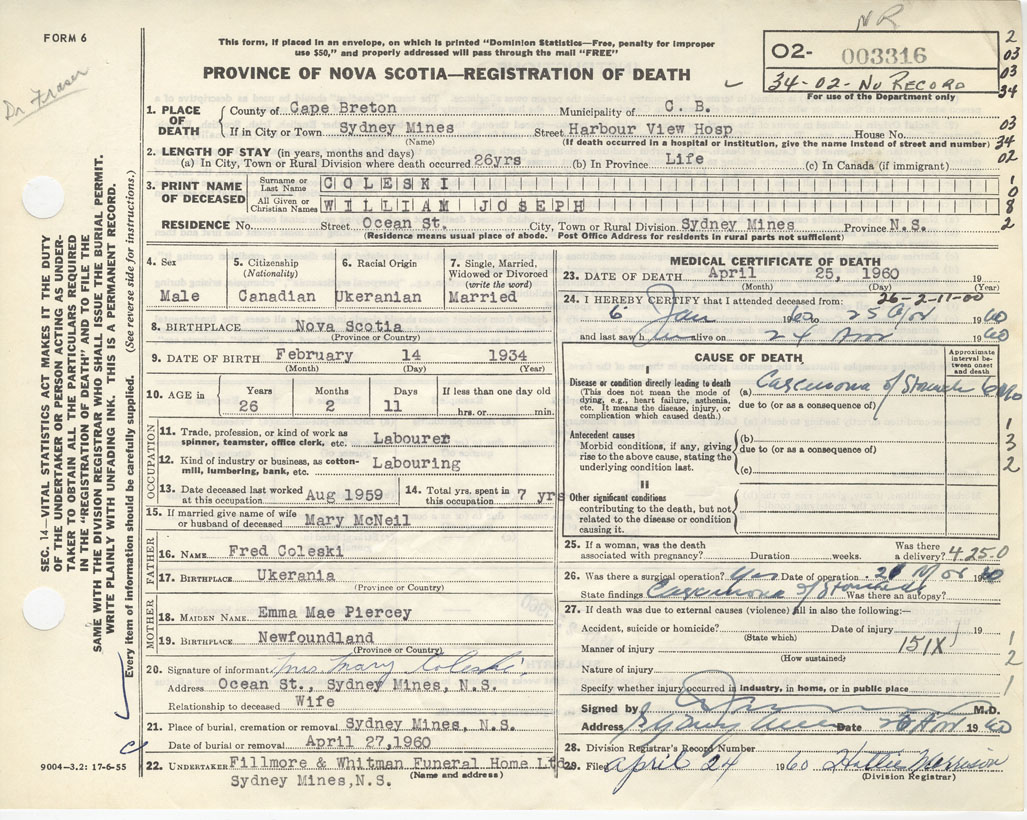 FORM 6
Dr. Fraser
This form, if placed in an envelope, on which is printed "Dominion Statistics—Free, penalty for improper
use $50," and properly addressed will pass through the mail "FREE"
PROVINCE OF NOVA SCOTIA—REGISTRATION OF DEATH
NR
02- 003316
34-02-No RECORD
For use of the Department only
2
03
03
34
03
34
02
1
0
8
2
SEC. 14—VITAL STATISTICS ACT MAKES IT THE DUTY
OF THE UNDERTAKER OR PERSON ACTING AS UNDER-
TAKER TO OBTAIN ALL THE PARTICULARS REQUIRED
IN THE "REGISTRATION OF DEATH" AND TO FILE THE
SAME WITH THE DIVISION REGISTRAR WHO SHALL ISSUE THE BURIAL PERMIT.
WRITE PLAINLY WITH UNFADING INK. THIS IS A PERMANENT RECORD.
Every item of information should be carefully supplied. (See reverse side for instructions.)
1. PLACE OF DEATH
County of Cape Breton Municipality of C. B.
If in City or Town Sydney Mines Street Harbour View Hosp House No.
(Name) (If death occurred in a hospital or institution, give the name instead of street and number)
2. LENGTH OF STAY (in years, months and days)
(a) In City, Town or Rural Division where death occurred 26yrs (b) In Province Life (c) In Canada (if immigrant)
3. PRINT NAME OF DECEASED
Surname or Last Name COLESKI
All Given or Christian Names WILLIAM JOSEPH
RESIDENCE No. Street Ocean St. City, Town or Rural Division Sydney Mines Province N.S.
(Residence means usual place of abode. Post Office Address for residents in rural parts not sufficient)
4. Sex
Male
5. Citizenship
(Nationality)
Canadian
6. Racial Origin
Ukeranian
7. Single, Married,
Widowed or Divorced
(write the word)
Married
8. BIRTHPLACE Nova Scotia
(Province or Country)
9. DATE OF BIRTH February 14 1934
(Month) (Day) (Year)
10. AGE in
Years Months Days If less than one day old
26 2 11 hrs. or min.
OCCUPATION
11. Trade, profession, or kind of work as
spinner, teamster, office clerk, etc. Labourer
12. Kind of industry or business, as cotton-
mill, lumbering, bank, etc. Labouring
13. Date deceased last worked
at this occupation Aug 1959
14. Total yrs. spent in
this occupation 7 yrs
15. If married give name of wife
or husband of deceased Mary McNeil
FATHER
16. NAME Fred Coleski
17. BIRTHPLACE Ukerania
(Province or Country)
MOTHER
18. MAIDEN NAME Emma Mae Piercey
19. BIRTHPLACE Newfoundland
(Province or Country)
20. Signature of informant Mrs. Mary Coleski
Address Ocean St., Sydney Mines, N.S.
Relationship to deceased Wife
21. Place of burial, cremation or removal Sydney Mines, N.S.
Date of burial or removal April 27,1960
22. UNDERTAKER Fillmore & Whitman Funeral Home Ltd
(Name and address)
Sydney Mines,N.S.
9004—3.2: 17-6-55
MEDICAL CERTIFICATE OF DEATH
23. DATE OF DEATH April 25, 1960 19
(Month) (Day) (Year)
24. I HEREBY CERTIFY that I attended deceased from: 26-2-11-00
6 Jan 1960 to 25 Apr 1960
and last saw h im alive on 24 1960
CAUSE OF DEATH
Approximate
interval be-
tween onset
and death
I
Disease or condition directly leading to death
(This does not mean the mode of
dying, e.g., heart failure, asthenia,
etc. It means the disease, injury, or
complication which caused death.)
(a) Carcinoma of Stomach
due to (or as a consequence of)
Antecedent causes
Morbid conditions, if any, giving
rise to the above cause, stating the
underlying condition last.
(b)
due to (or as a consequence of)
(c)
II
Other significant conditions
contributing to the death, but not
related to the disease or condition
causing it.
1
3
2
25. If a woman, was the death
associated with pregnancy? Duration weeks. Was there
a delivery? 4.25.0
26. Was there a surgical operation? Yes Date of operation 1960
State findings Carcinoma of Stomach Was there an autopsy?
27. If death was due to external causes (violence) fill in also the following:—
Accident, suicide or homicide? Date of injury 19
(State which)
Manner of injury 151X
(How sustained)
Nature of injury
Specify whether injury occurred in industry, in home, or in public place
1
2
1
Signed by M.D.
Address Sydney Mines Date 26 Apr 1960
28. Division Registrar's Record Number
29. Filed April 24 1960 Hattie Morrison
(Division Registrar)